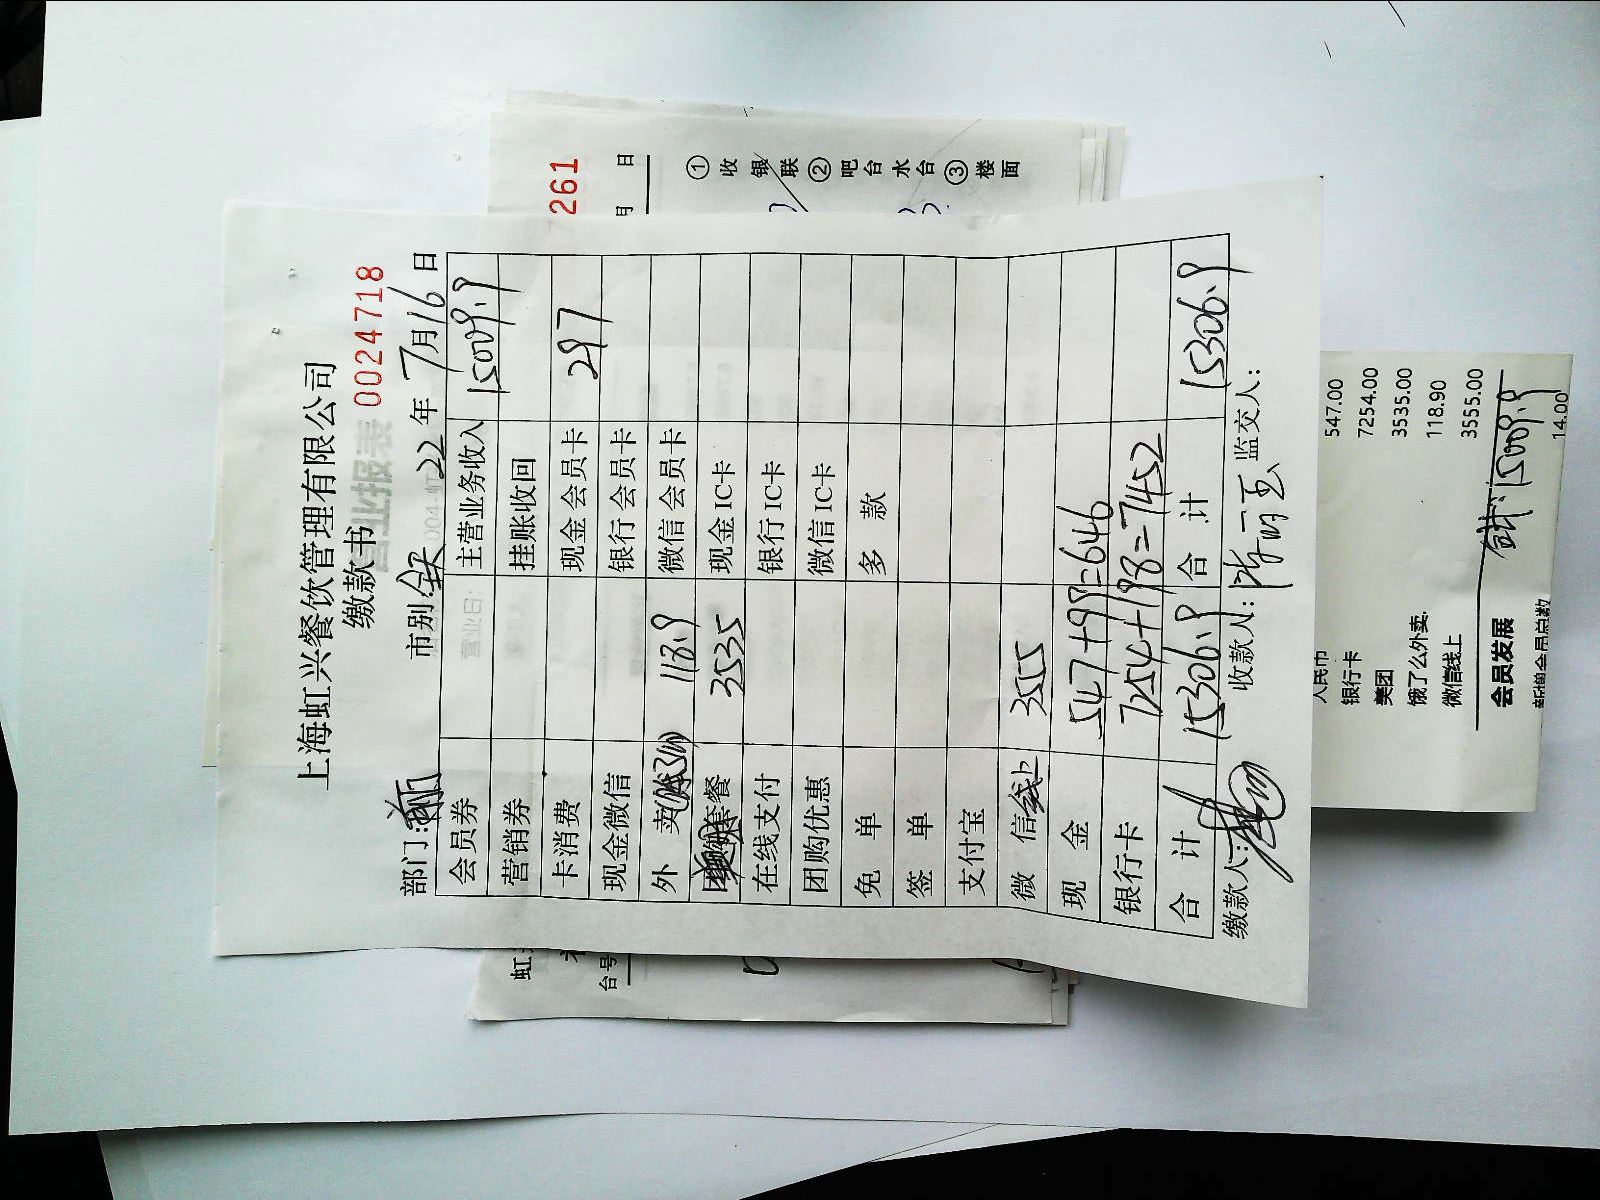 上海虹兴餐饮管理有限公司
缴款书 0024718
部门: 市别 全天 22年 7月16日
会员券 主营业务收入 15009.9
营销券 挂账收回
卡消费 现金会员卡 297
现金微信 银行会员卡
外卖 118.9 微信会员卡
套餐 3535 现金IC卡
在线支付 银行IC卡
团购优惠 微信IC卡
免单 多款
签单
支付宝
微信 线上 3555
现金 547+99=646
银行卡 7254+198=7452
合计 15306.9 合计 15306.9
缴款人: 收款人: 监交人:
261
月 日
①收银联②吧台水台③楼面
虹
台号
营业报表
营业日:
人民币 547.00
银行卡 7254.00
美团 3535.00
饿了么外卖 118.90
微信线上 3555.00
15009.9
会员发展
新增会员总数 14.00